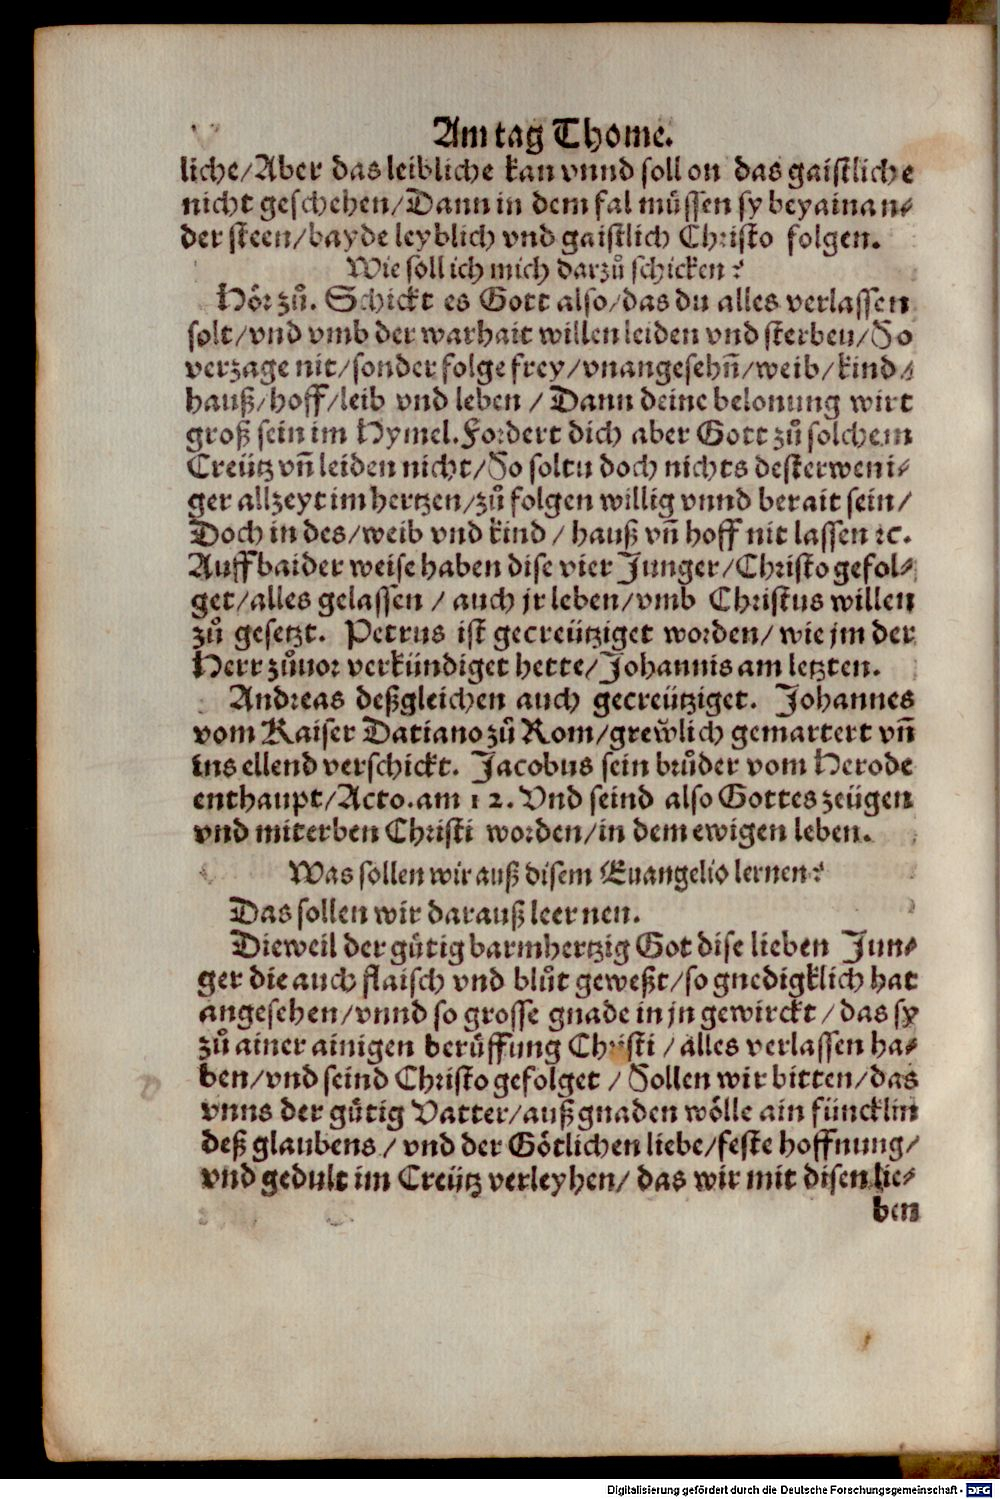 Am tag Thome.
liche/Aber das leibliche kan vnnd soll on das gaistliche
nicht geschehen/Dann in dem fal müssen sy beyainan⸗
der steen/bayde leyblich vnd gaistlich Christo folgen.
Wie soll ich mich darzů schicken?
Hör zů. Schickt es Gott also/das du alles verlassen
solt/vnd vmb der warhait willen leiden vnd sterben/So
verzage nit/sonder folge frey/vnangesehn̄/weib/kind/
hauß/hoff/leib vnd leben / Dann deine belonung wirt
groß sein im Hymel. Fordert dich aber Gott zů solchem
Creütz vn̄ leiden nicht/So soltu doch nichts desterweni⸗
ger allzeyt im hertzen/zů folgen willig vnnd berait sein/
Doch in des/weib vnd kind / hauß vn̄ hoff nit lassen ꝛc.
Auff baider weise haben dise vier Junger/Christo gefol⸗
get/alles gelassen / auch jr leben/vmb Christus willen
zů gesetzt. Petrus ist gecreütziget worden/wie jm der
Herr zůuor verkündiget hette/Johannis am letzten.
Andreas deßgleichen auch gecreütziget. Johannes
vom Kaiser Datiano zů Rom/grewlich gemartert vn̄
ins ellend verschickt. Jacobus sein brůder vom Herode
enthaupt/Acto. am 12. Vnd seind also Gottes zeügen
vnd miterben Christi worden/in dem ewigen leben.
Was sollen wir auß disem Euangelio lernen?
Das sollen wir darauß leernen.
Dieweil der gütig barmhertzig Got dise lieben Jun⸗
ger die auch flaisch vnd blůt geweßt/so gnedigklich hat
angesehen/vnnd so grosse gnade in jn gewirckt / das sy
zů ainer ainigen berüffung Christi / alles verlassen ha⸗
ben/vnd seind Christo gefolget / Sollen wir bitten/das
vnns der gütig Vatter/auß gnaden wölle ain füncklin
deß glaubens / vnd der Götlichen liebe/feste hoffnung/
vnd gedult im Creütz verleyhen/ das wir mit disen lie⸗
ben
Digitalisierung gefördert durch die Deutsche Forschungsgemeinschaft - DFG